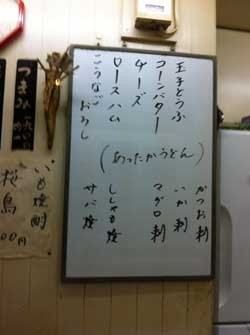 玉子とうふ
コーンバター
チーズ
ロースハム
こうなご おろし
(あったかうどん)
かつお刺
いか刺
マグロ刺
ししゃも焼
サバ焼
つまみ
いも焼酎
桜島
00円